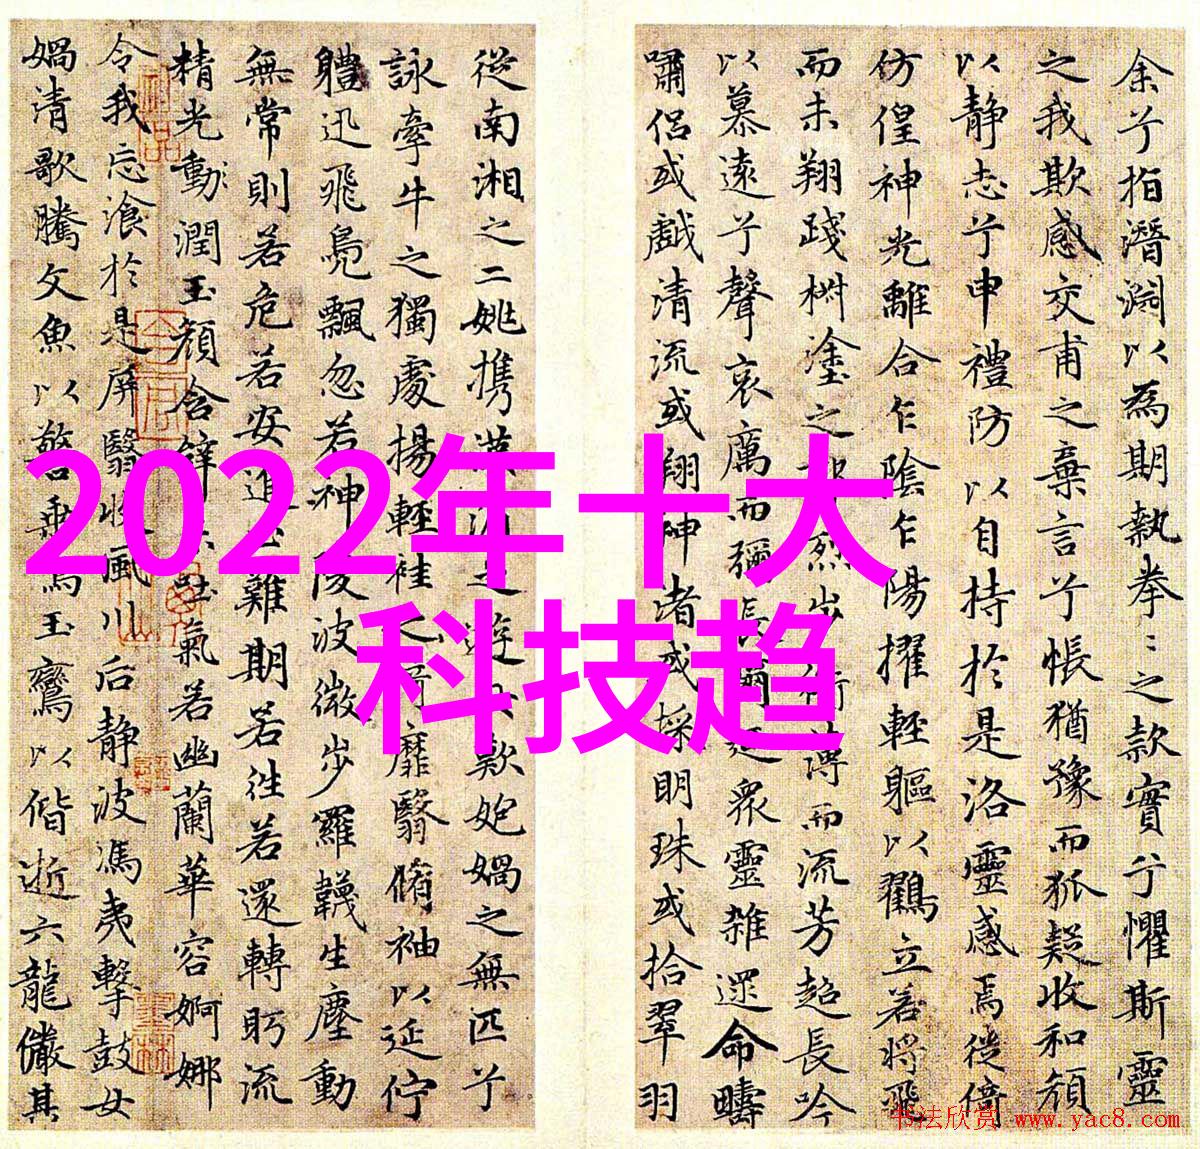 2022年十大
科技趋
余兮指潛淵以為期執拳〻之款實兮懼斯靈
之我欺感交甫之棄言兮悵猶豫而狐疑收和顏
以靜志兮申禮防以自持於是洛靈感焉徙倚
仿偟神光離合乍陰乍陽擢輕軀以鶴立若將飛
而未翔踐椒塗之烈步衡薄而流芳超長吟
以慕遠兮聲哀厲而彌長爾迺眾靈雜遝命疇
嘯侶或戲清流或翔神渚或採明珠或拾翠羽
從南湘之二姚攜漢濱之遊女歎匏媧之無匹兮
詠牽牛之獨處揚輕袿之猗靡翳脩袖以延佇
體迅飛鳧飄忽若神陵波微步羅韈生塵動
無常則若危若安進止難期若往若還轉眄流
精光動潤玉顏含辭未吐氣若幽蘭華容婀娜
令我忘飡於是屏翳收風川后靜波馮夷擊鼓女
媧清歌騰文魚以警乘鳴玉鸞以偕逝六龍儼其
书法欣赏 www.yac8.com